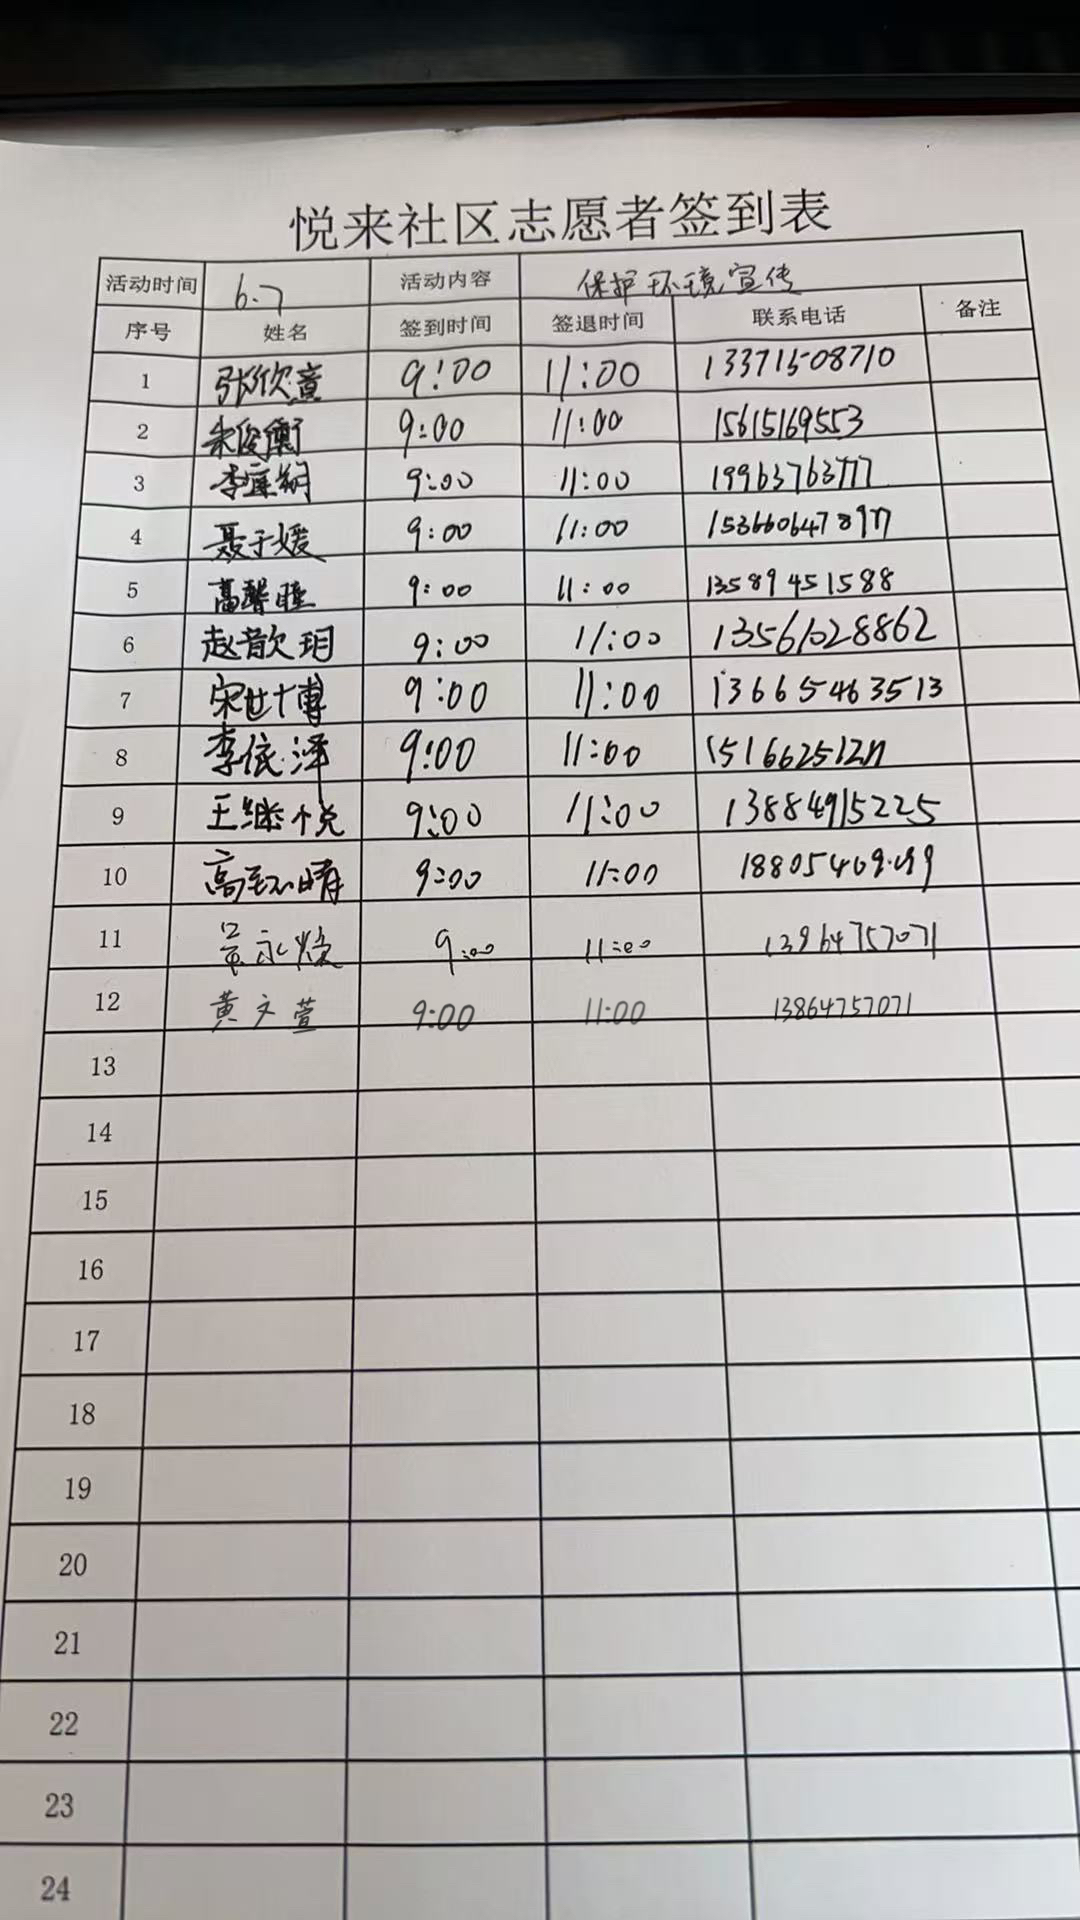 悦来社区志愿者签到表
活动时间 6.7 活动内容 保护环境宣传
序号 姓名 签到时间 签退时间 联系电话 备注
1 张欣童 9:00 11:00 13371508710
2 朱俊衡 9:00 11:00 15615169553
3 9:00 11:00 19963763777
4 聂于媛 9:00 11:00
5 高馨瞳 9:00 11:00 13589451588
6 赵歆玥 9:00 11:00 13561028862
7 宋世博 9:00 11:00 13665463513
8 李依泽 9:00 11:00
9 王继悦 9:00 11:00 13884915225
10 9:00 11:00
11 9:00 11:00 13964757071
12 黄文萱 9:00 11:00 13864757071
13
14
15
16
17
18
19
20
21
22
23
24